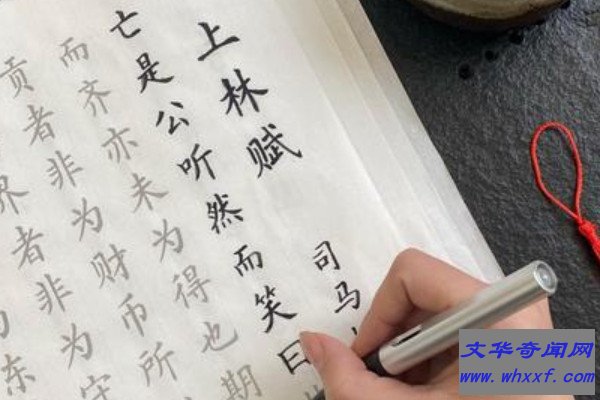 上林赋
司马
亡是公听然而笑曰
而齐亦未为得也期
贡者非为财币所
界者非为守
东
文华奇闻网
www.whxxf.com